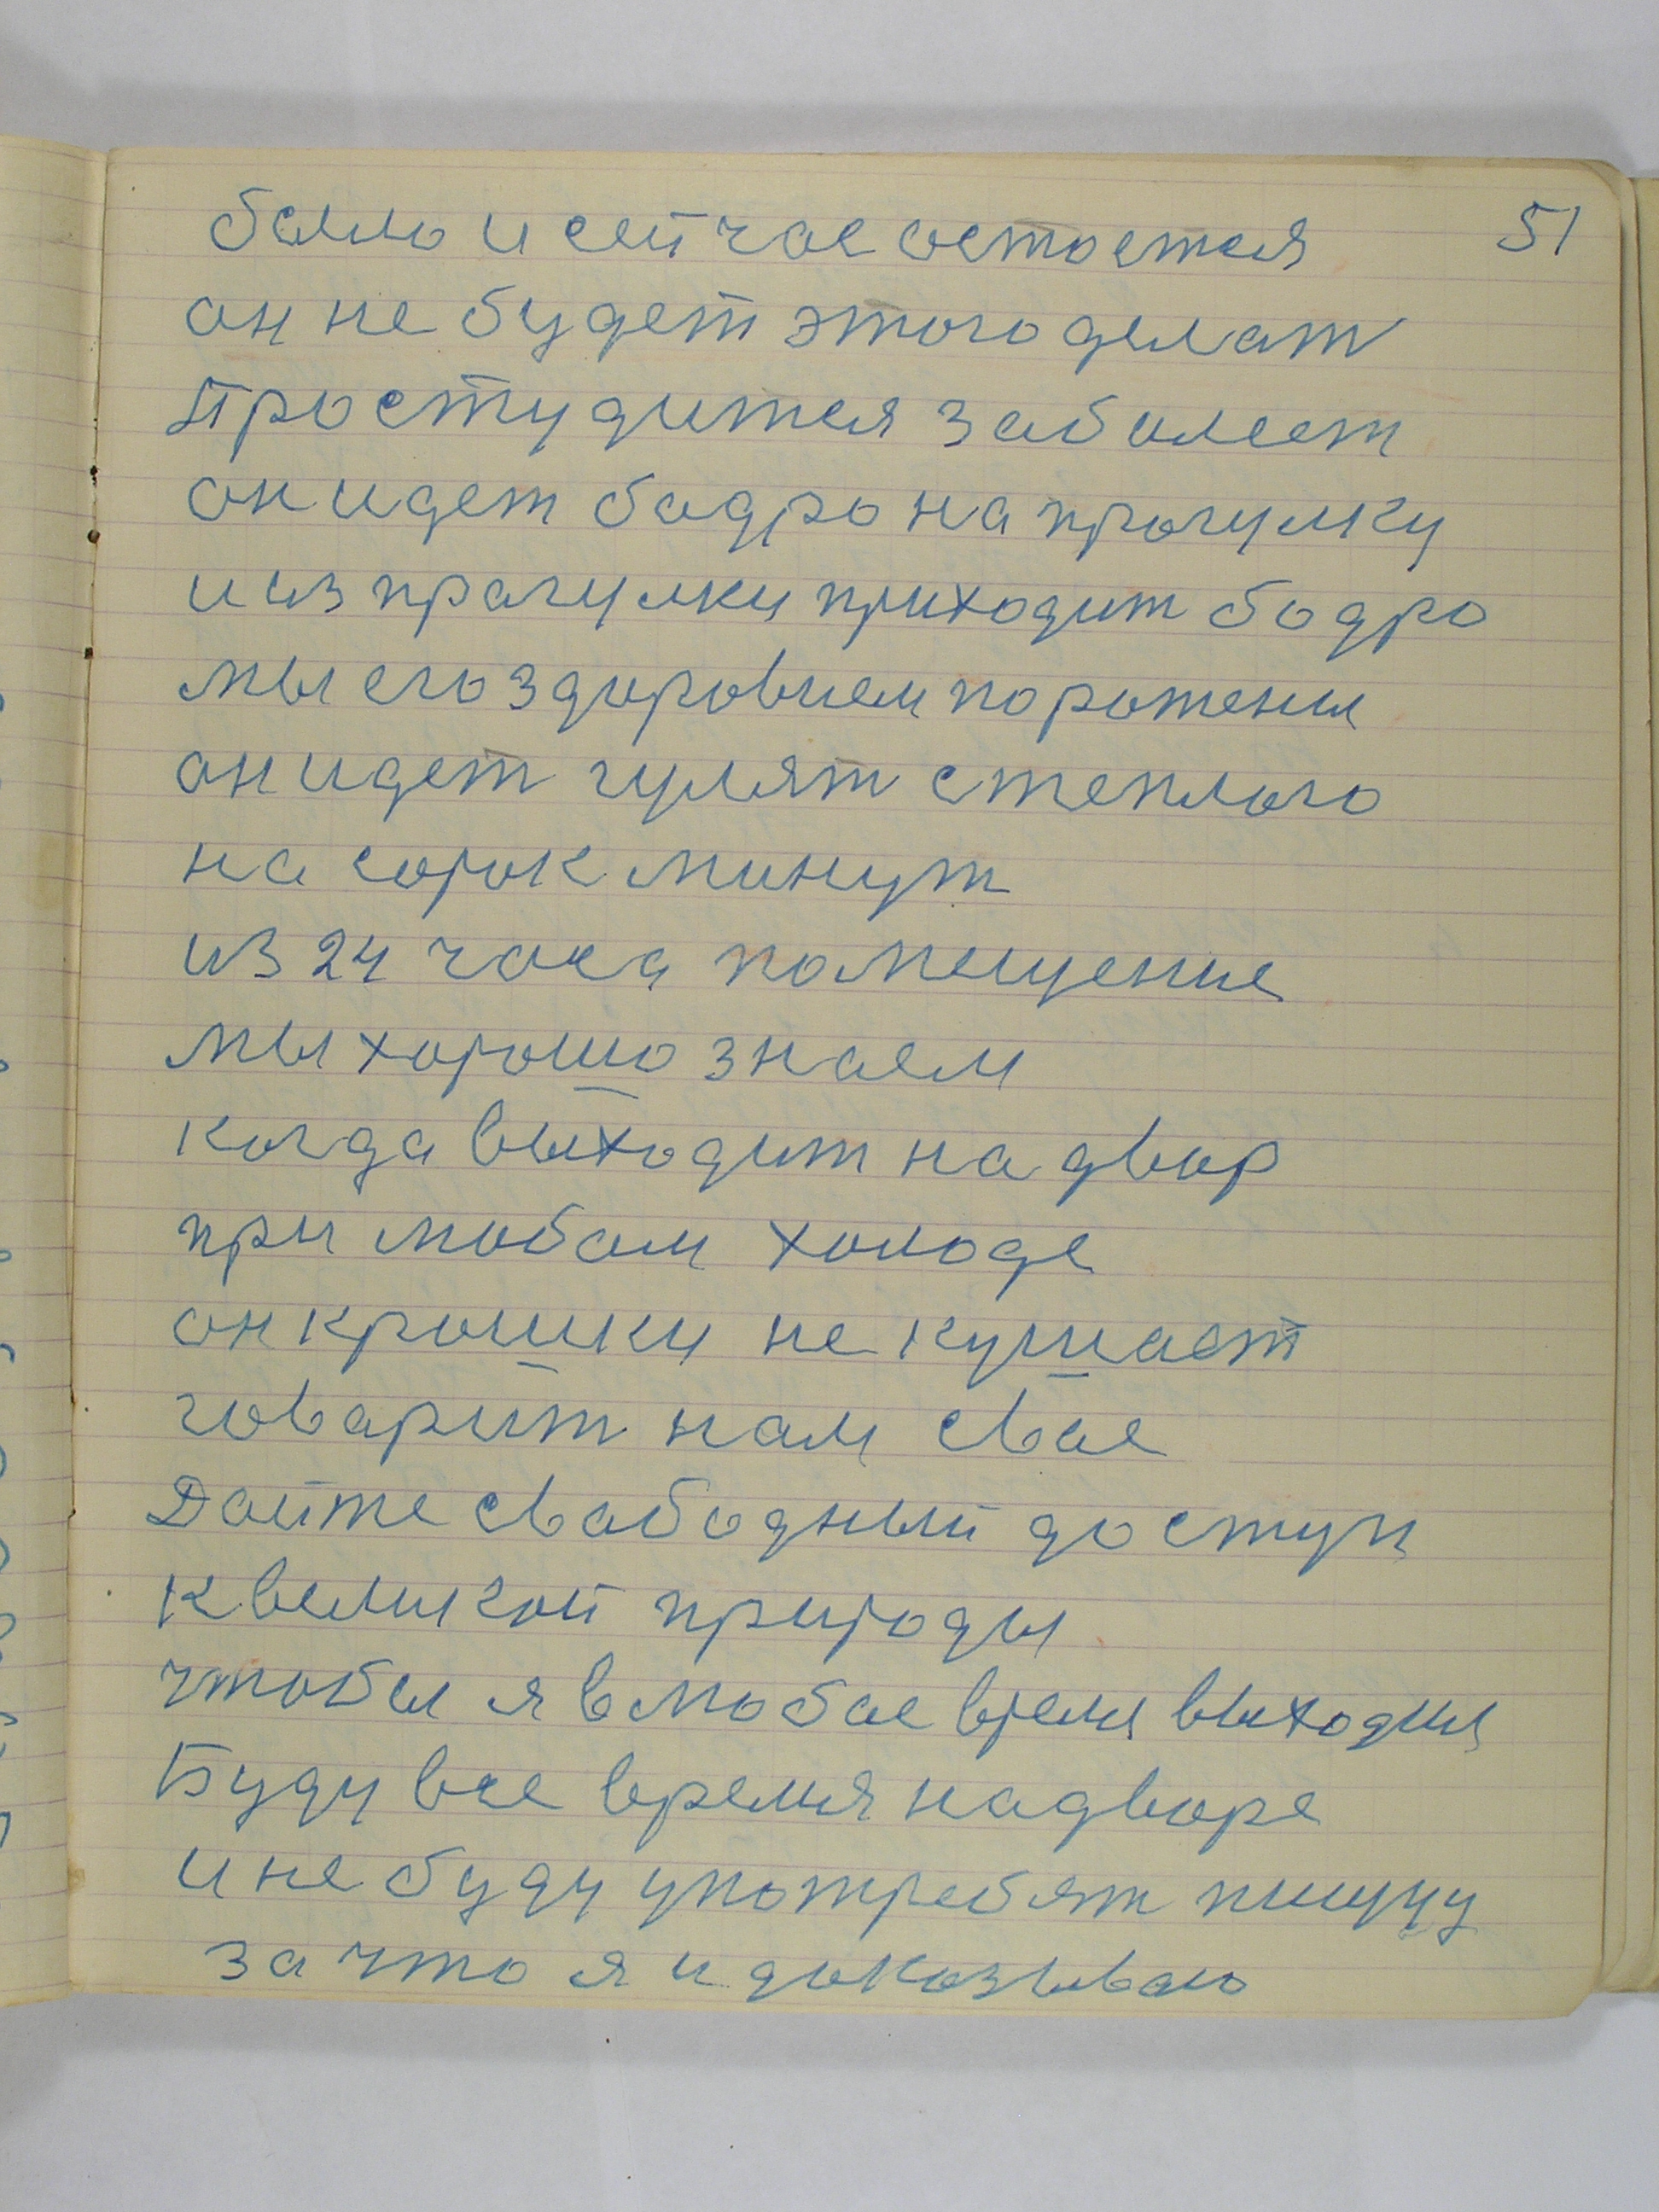 51
было и сейчас остоется
он не будет этого делат
Простудится заболеет
он идет бодро на прогулку
и из прагулки приходит бодро
мы его здоровием поражены
он идет гулят с теплого
на сорок минут
из 24 часа помещение
мы хорошо знаем
когда выходит на двор
при любом холоде
он крошки не кушает
говарит нам свое
Дайте свабодный доступ
к великой природы
чтобы я в любое время выходил
Буду все время на дворе
и не буду употреблят пищу
за что я и доказываю